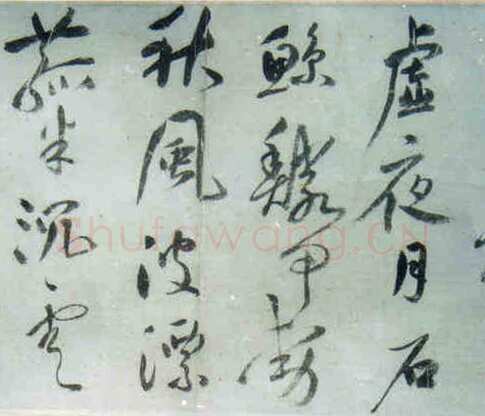 虛夜月石
鯨鱗甲動
秋風波漂
菰米沉雲
Shufawang.CN